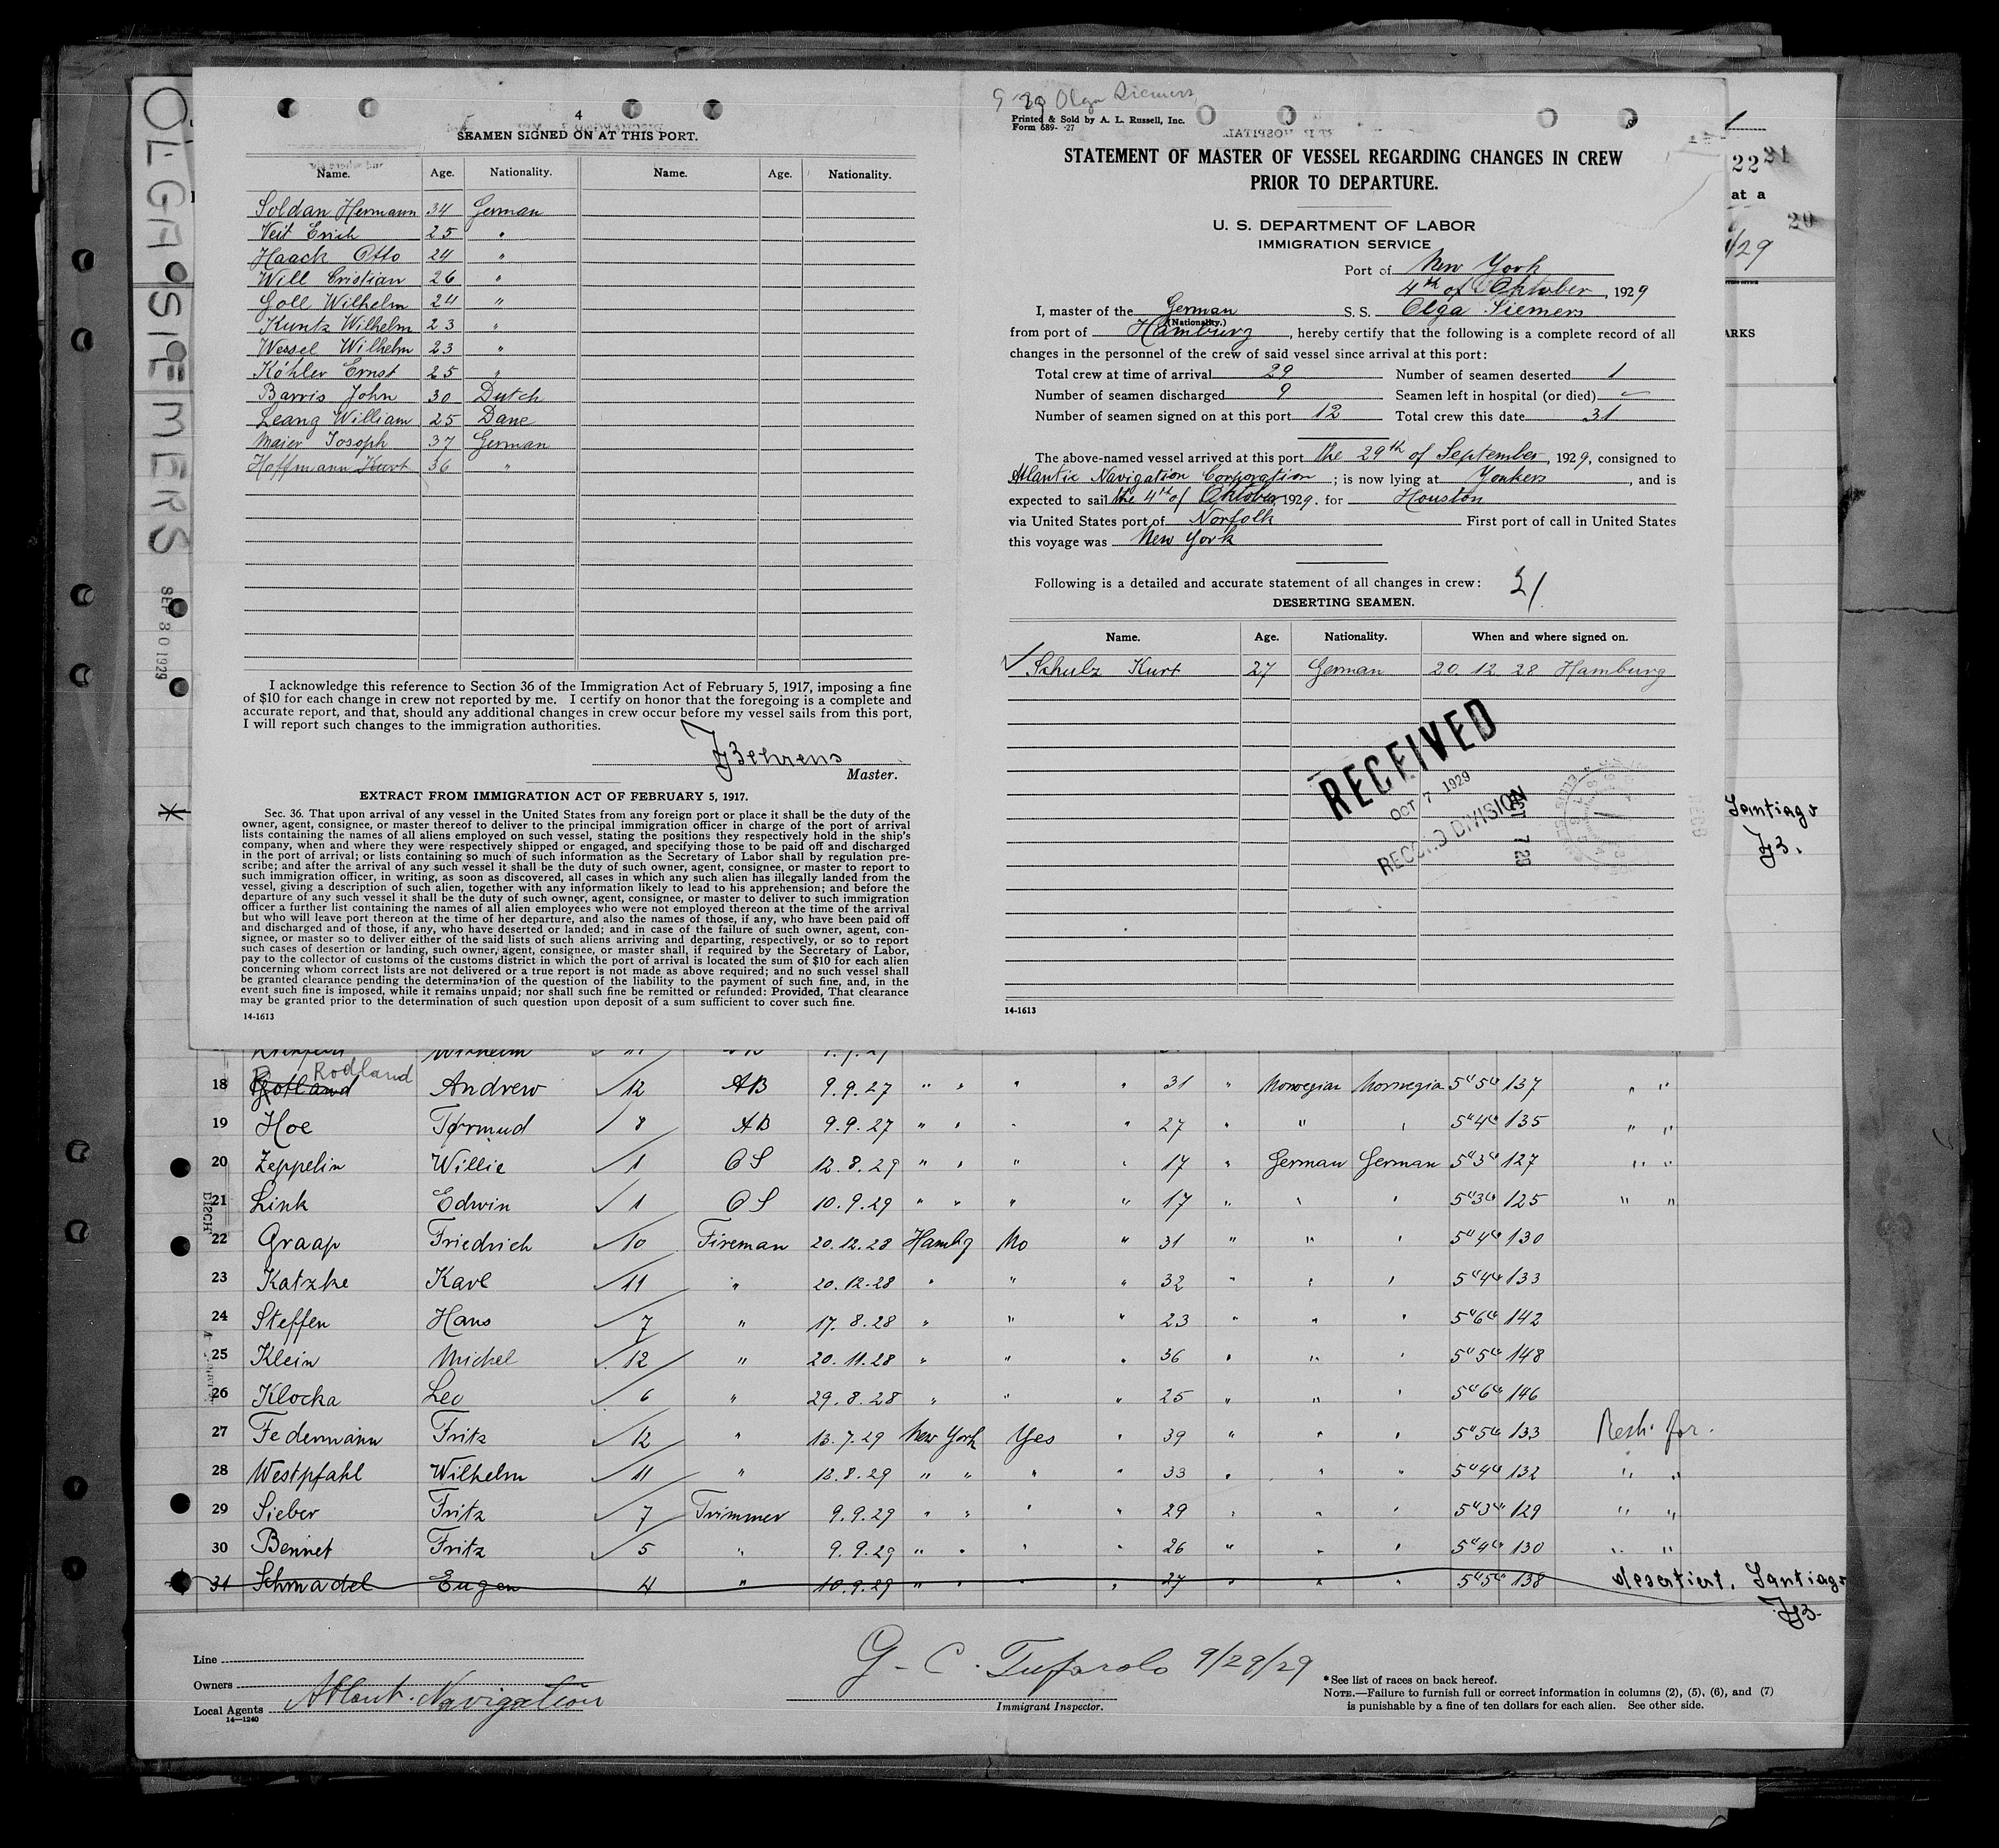 OLGA SIEMERS
SEP 30 1929
4
SEAMEN SIGNED ON AT THIS PORT.
Name. Age. Nationality. Name. Age. Nationality.
Soldan Hermann 34 German
Veit Erich 25 "
Haack Otto 24 "
Will Cristian 26 "
Goll Wilhelm 24 "
Kuntz Wilhelm 23 "
Wessel Wilhelm 23 "
Köhler Ernst 25 "
Barris John 30 Dutch
Leang William 25 Dane
Maier Josoph 37 German
Hoffmann Kurt 36 "
I acknowledge this reference to Section 36 of the Immigration Act of February 5, 1917, imposing a fine
of $10 for each change in crew not reported by me. I certify on honor that the foregoing is a complete and
accurate report, and that, should any additional changes in crew occur before my vessel sails from this port,
I will report such changes to the immigration authorities.
Behrens
Master.
EXTRACT FROM IMMIGRATION ACT OF FEBRUARY 5, 1917.
Sec. 36. That upon arrival of any vessel in the United States from any foreign port or place it shall be the duty of the
owner, agent, consignee, or master thereof to deliver to the principal immigration officer in charge of the port of arrival
lists containing the names of all aliens employed on such vessel, stating the positions they respectively hold in the ship's
company, when and where they were respectively shipped or engaged, and specifying those to be paid off and discharged
in the port of arrival; or lists containing so much of such information as the Secretary of Labor shall by regulation pre-
scribe; and after the arrival of any such vessel it shall be the duty of such owner, agent, consignee, or master to report to
such immigration officer, in writing, as soon as discovered, all cases in which any such alien has illegally landed from the
vessel, giving a description of such alien, together with any information likely to lead to his apprehension; and before the
departure of any such vessel it shall be the duty of such owner, agent, consignee, or master to deliver to such immigration
officer a further list containing the names of all alien employees who were not employed thereon at the time of the arrival
but who will leave port thereon at the time of her departure, and also the names of those, if any, who have been paid off
and discharged and of those, if any, who have deserted or landed; and in case of the failure of such owner, agent, con-
signee, or master so to deliver either of the said lists of such aliens arriving and departing, respectively, or so to report
such cases of desertion or landing, such owner, agent, consignee, or master shall, if required by the Secretary of Labor,
pay to the collector of customs of the customs district in which the port of arrival is located the sum of $10 for each alien
concerning whom correct lists are not delivered or a true report is not made as above required; and no such vessel shall
be granted clearance pending the determination of the question of the liability to the payment of such fine, and, in the
event such fine is imposed, while it remains unpaid; nor shall such fine be remitted or refunded: Provided, That clearance
may be granted prior to the determination of such question upon deposit of a sum sufficient to cover such fine.
14-1613
Olga Siemers
Printed & Sold by A. L. Russell, Inc.
Form 689- -27
STATEMENT OF MASTER OF VESSEL REGARDING CHANGES IN CREW
PRIOR TO DEPARTURE.
U. S. DEPARTMENT OF LABOR
IMMIGRATION SERVICE
Port of New York
4th of Oktober, 1929
I, master of the German S. S. Olga Siemers
(Nationality.)
from port of Hamburg, hereby certify that the following is a complete record of all
changes in the personnel of the crew of said vessel since arrival at this port:
Total crew at time of arrival 29 Number of seamen deserted 1
Number of seamen discharged 9 Seamen left in hospital (or died) -
Number of seamen signed on at this port 12 Total crew this date 31
The above-named vessel arrived at this port the 29th of September, 1929, consigned to
Atlantic Navigation Corporation; is now lying at Yonkers, and is
expected to sail the 4th of Oktober 1929. for Houston
via United States port of Norfolk First port of call in United States
this voyage was New York
Following is a detailed and accurate statement of all changes in crew:
DESERTING SEAMEN.
Name. Age. Nationality. When and where signed on.
✓ Schulz Kurt 27 German 20.12.28 Hamburg
RECEIVED
OCT 7 1929
RECORD DIVISION
14-1613
at a
Santiago
18 Rotland Rodland Andrew 12 AB 9.9.27 " " " " 31 " Norwegian Norwegia 5"5" 137 " "
19 Hoe Tormud 8 AB 9.9.27 " " " " 27 " " " 5"4" 135 " "
20 Zeppelin Willie 1 OS 12.8.29 " " " " 17 " German German 5"3" 127 " "
21 Link Edwin 1 OS 10.9.29 " " " " 17 " " " 5"3" 125 " "
22 Graap Friedrich 10 Fireman 20.12.28 Hambg No " 31 " " " 5"4" 130
23 Katzke Karl 11 " 20.12.28 " " " 32 " " " 5"4" 133
24 Steffen Hans 7 " 17.8.28 " " " 23 " " " 5"6" 142
25 Klein Michel 12 " 20.11.28 " " " 36 " " " 5"5" 148
26 Klocka Leo 6 " 29.8.28 " " " 25 " " " 5"6" 146
27 Federmann Fritz 12 " 13.7.29 New York Yes " 39 " " " 5"5" 133
28 Westpfahl Wilhelm 11 " 13.8.29 " " " " 33 " " " 5"4" 132 " "
29 Sieber Fritz 7 Trimmer 9.9.29 " " " " 29 " " " 5"3" 129 " "
30 Bennet Fritz 5 " 9.9.29 " " " " 26 " " " 5"4" 130 " "
31 Schmadel Eugen 4 " 10.9.29 " " " " 27 " " " 5"5" 138 desertiert. Santiago
Line
Owners
Local Agents Atlant. Navigation
14-1240
G. C. Tufarolo 9/29/29
Immigrant Inspector.
*See list of races on back hereof.
NOTE.—Failure to furnish full or correct information in columns (2), (5), (6), and (7)
is punishable by a fine of ten dollars for each alien. See other side.